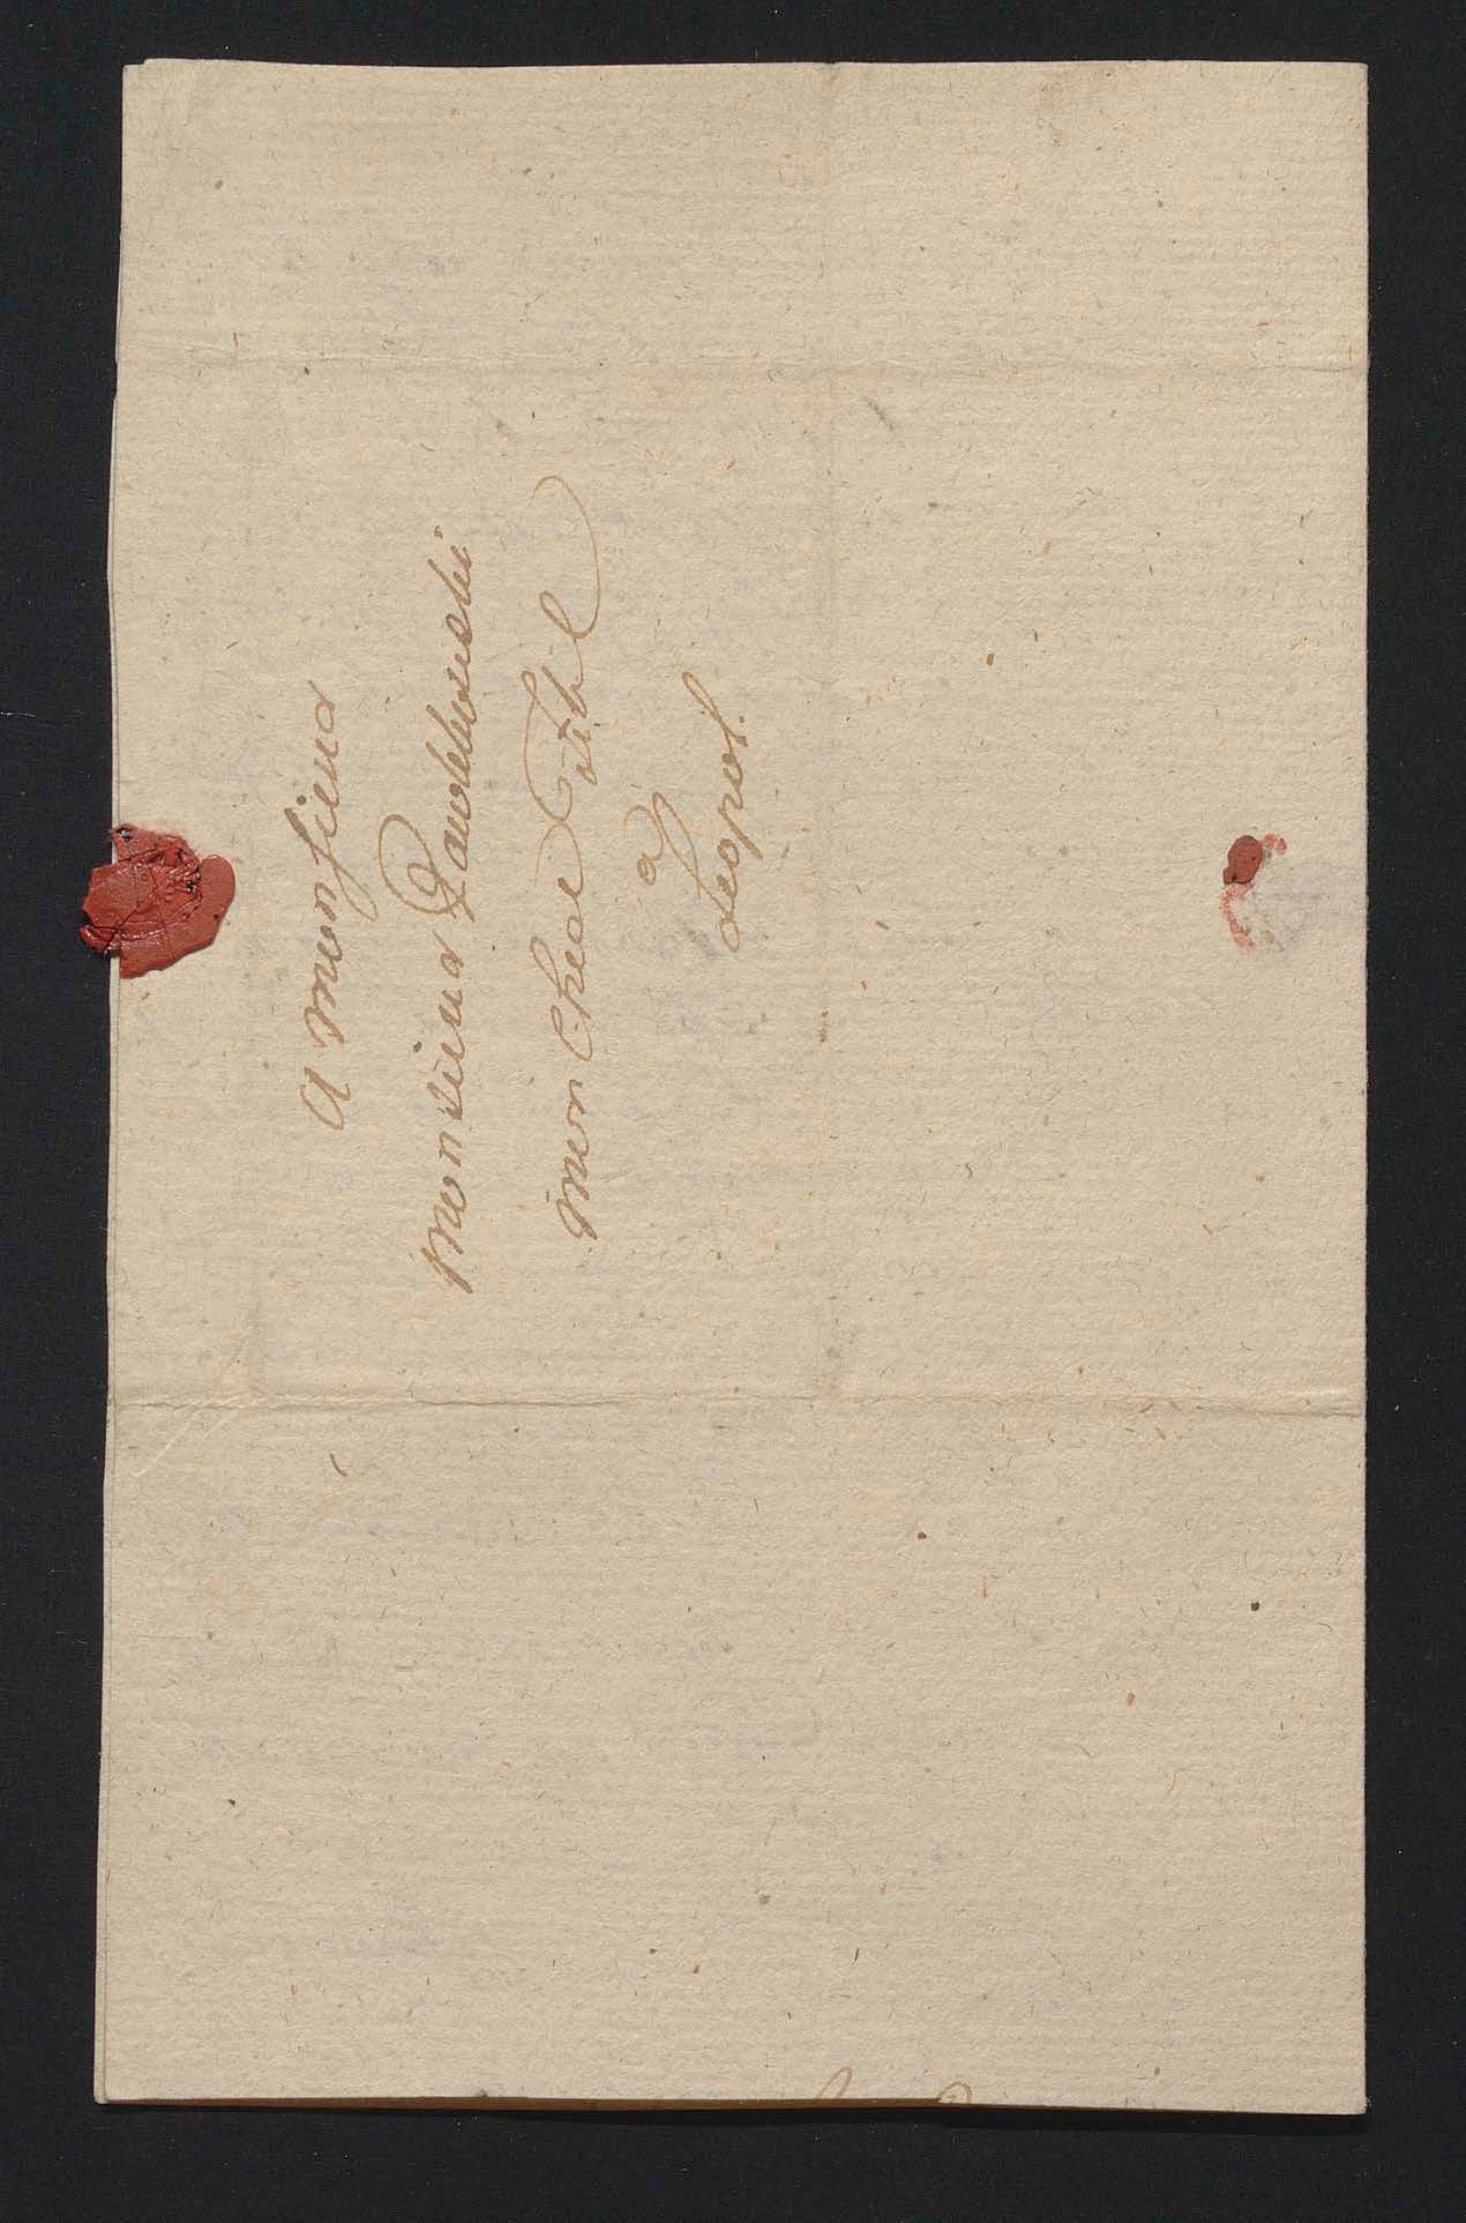 A Monsieur
Monsieur Pawlikowski
Mon Cheal
a
Leopol.